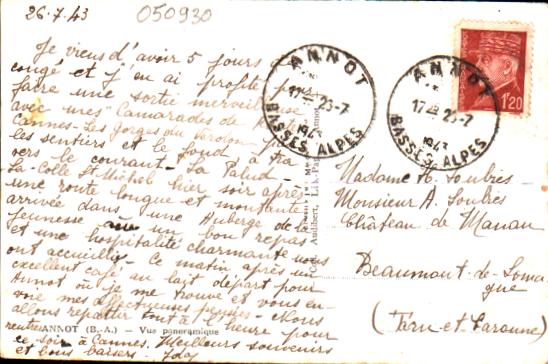 26.7.43
050930
Je viens d'avoir 5 jours de
congé et j'en ai profité pour
faire une sortie merveilleuse
avec mes "Camarades de
Cannes - Les gorges du Verdon par
les sentiers et le fond à tra
vers le courant - La Palud -
La Colle St Michel hier soir après
une route longue et montante
arrivée dans une Auberge de la
Jeunesse un bon repas
et une hospitalité charmante nous
ont accueillis - Ce matin après un
excellent café au lait départ pour
Annot où je me trouve et vous en-
voie mes affectueuses pensées - Nous
allons repartir tout à l'heure pour
rentrer
ce soir à Cannes. Meilleurs souvenirs
et bons baisers.
ANNOT (B.-A.) — Vue panoramique
ANNOT
17 23-7
1943
BASSES ALPES
ANNOT
17 23-7
1943
BASSES ALPES
1f20
Madame
Monsieur A. Soubies
Château de Manau
Beaumont-de-Loma
gne
(Tarn-et-Garonne)